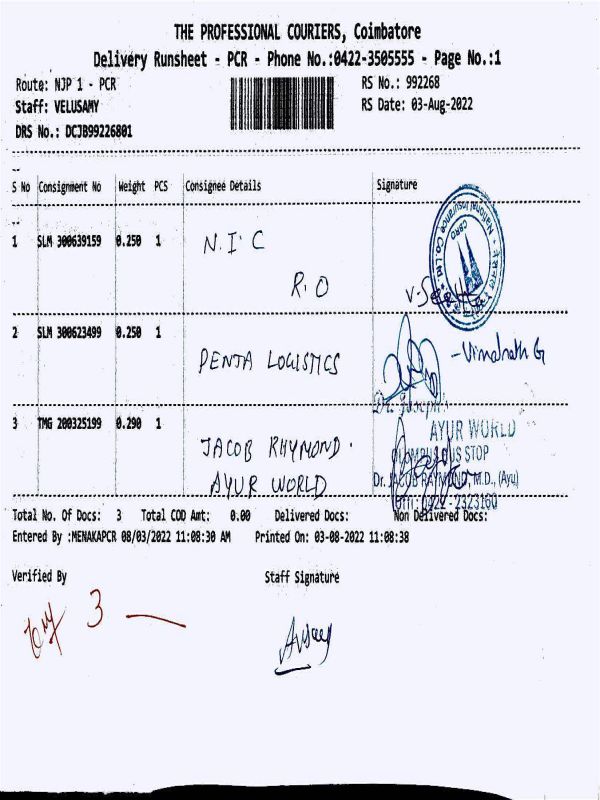 THE PROFESSIONAL COURIERS, Coimbatore
Delivery Runsheet - PCR - Phone No.:0422-3505555 - Page No.:1
Route: NJP 1 - PCR RS No.: 992268
Staff: VELUSAMY RS Date: 03-Aug-2022
DRS No.: DCJB99226801
S No Consignment No Weight PCS Consignee Details Signature
1 SLM 300639159 0.250 1 N.I.C
R.O
National Insurance Co. Ltd.
CBRO
2 SLM 300623499 0.250 1 PENTA LOGISTICS
- Vimalnath G
Dr. Joseph's
3 TMG 200325199 0.290 1 JACOB RAYMOND.
AYUR WORLD
AYUR WORLD
BUS STOP
Dr. JACOB RAYMOND, M.D., (Ayu)
Off : 0422 - 2323160
Total No. Of Docs: 3 Total COD Amt: 0.00 Delivered Docs: Non Delivered Docs:
Entered By :MENAKAPCR 08/03/2022 11:08:30 AM Printed On: 03-08-2022 11:08:38
Verified By Staff Signature
3 —